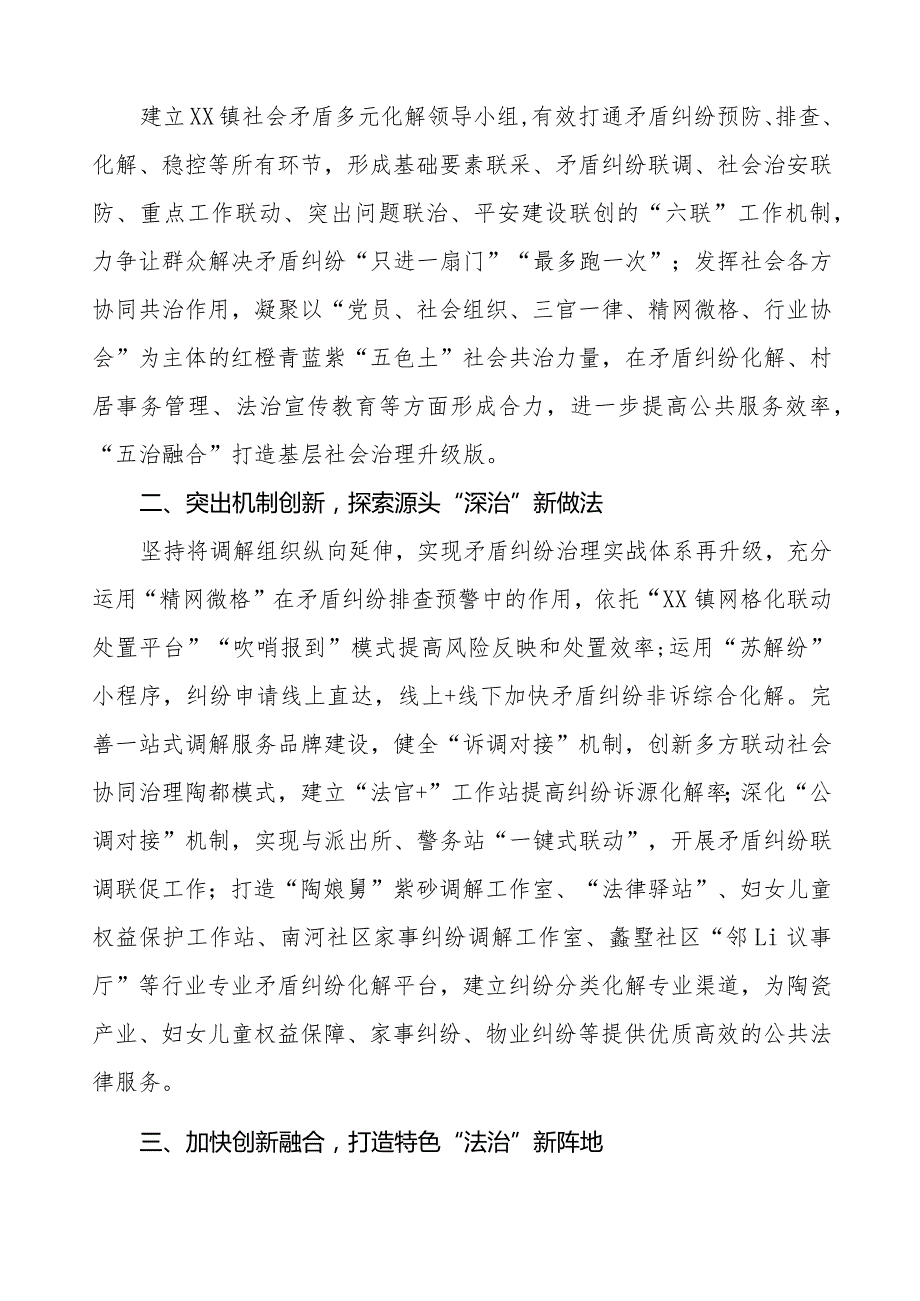 建立XX镇社会矛盾多元化解领导小组,有效打通矛盾纠纷预防、排查、
化解、稳控等所有环节，形成基础要素联采、矛盾纠纷联调、社会治安联
防、重点工作联动、突出问题联治、平安建设联创的“六联”工作机制，
力争让群众解决矛盾纠纷“只进一扇门”“最多跑一次”；发挥社会各方
协同共治作用，凝聚以“党员、社会组织、三官一律、精网微格、行业协
会”为主体的红橙青蓝紫“五色土”社会共治力量，在矛盾纠纷化解、村
居事务管理、法治宣传教育等方面形成合力，进一步提高公共服务效率，
“五治融合”打造基层社会治理升级版。
二、突出机制创新，探索源头“深治”新做法
坚持将调解组织纵向延伸，实现矛盾纠纷治理实战体系再升级，充分
运用“精网微格”在矛盾纠纷排查预警中的作用，依托“XX镇网格化联动
处置平台”“吹哨报到”模式提高风险反映和处置效率;运用“苏解纷”
小程序，纠纷申请线上直达，线上+线下加快矛盾纠纷非诉综合化解。完
善一站式调解服务品牌建设，健全“诉调对接”机制，创新多方联动社会
协同治理陶都模式，建立“法官+”工作站提高纠纷诉源化解率；深化“公
调对接”机制，实现与派出所、警务站“一键式联动”，开展矛盾纠纷联
调联促工作；打造“陶娘舅”紫砂调解工作室、“法律驿站”、妇女儿童
权益保护工作站、南河社区家事纠纷调解工作室、蠡墅社区“邻Li议事
厅”等行业专业矛盾纠纷化解平台，建立纠纷分类化解专业渠道，为陶瓷
产业、妇女儿童权益保障、家事纠纷、物业纠纷等提供优质高效的公共法
律服务。
三、加快创新融合，打造特色“法治”新阵地